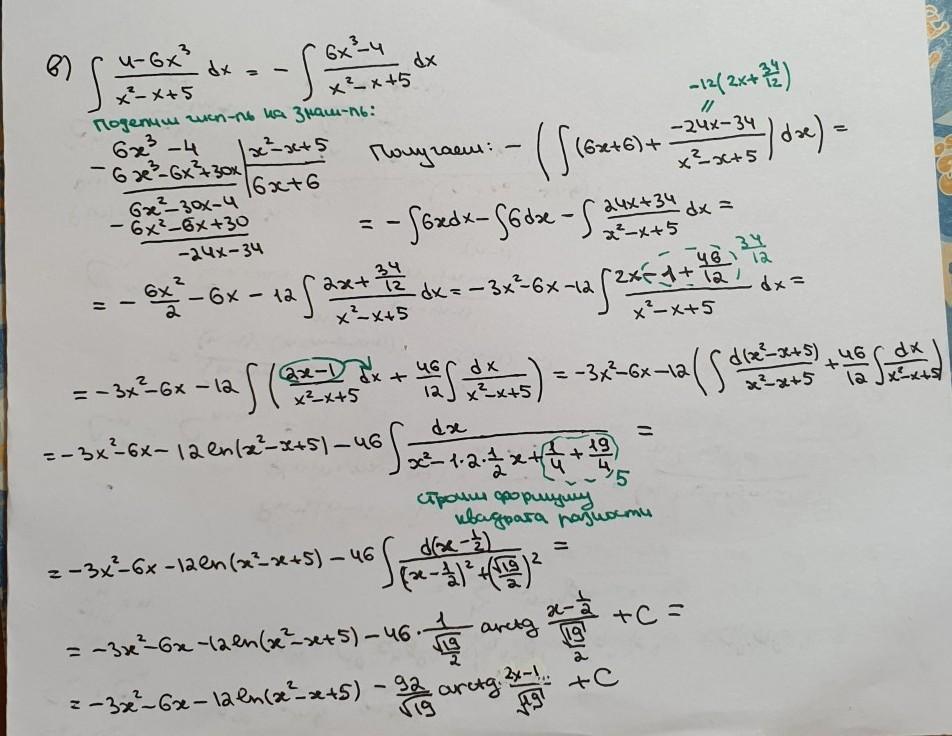 в) ∫ (4-6x³)/(x²-x+5) dx = - ∫ (6x³-4)/(x²-x+5) dx
-12(2x+34/12)
Поделим числ-ль на знам-ль:
6x³-4 | x²-x+5
- 6x³-6x²+30x | 6x+6
6x²-30x-4
- 6x²-6x+30
-24x-34
Получаем: - (∫ (6x+6) + (-24x-34)/(x²-x+5)) dx) =
= -∫6xdx - ∫6dx - ∫ (24x+34)/(x²-x+5) dx =
= - 6x²/2 - 6x - 12 ∫ (2x+34/12)/(x²-x+5) dx = -3x²-6x-12 ∫ (2x-1+46/12)/(x²-x+5) dx =
34/12
= -3x²-6x-12 ∫ ((2x-1)/(x²-x+5) dx + 46/12 ∫ dx/(x²-x+5)) = -3x²-6x-12 (∫ d(x²-x+5)/(x²-x+5) + 46/12 ∫ dx/(x²-x+5))
= -3x²-6x-12 ln(x²-x+5) - 46 ∫ dx/(x²-1·2·1/2 x+1/4+19/4) =
5
строим формулу
квадрата разности
= -3x²-6x-12 ln(x²-x+5) - 46 ∫ d(x-1/2)/((x-1/2)²+(√19/2)²) =
= -3x²-6x-12 ln(x²-x+5) - 46 · 1/(√19/2) arctg (x-1/2)/(√19/2) + C =
= -3x²-6x-12 ln(x²-x+5) - 92/√19 arctg (2x-1)/√19 + C